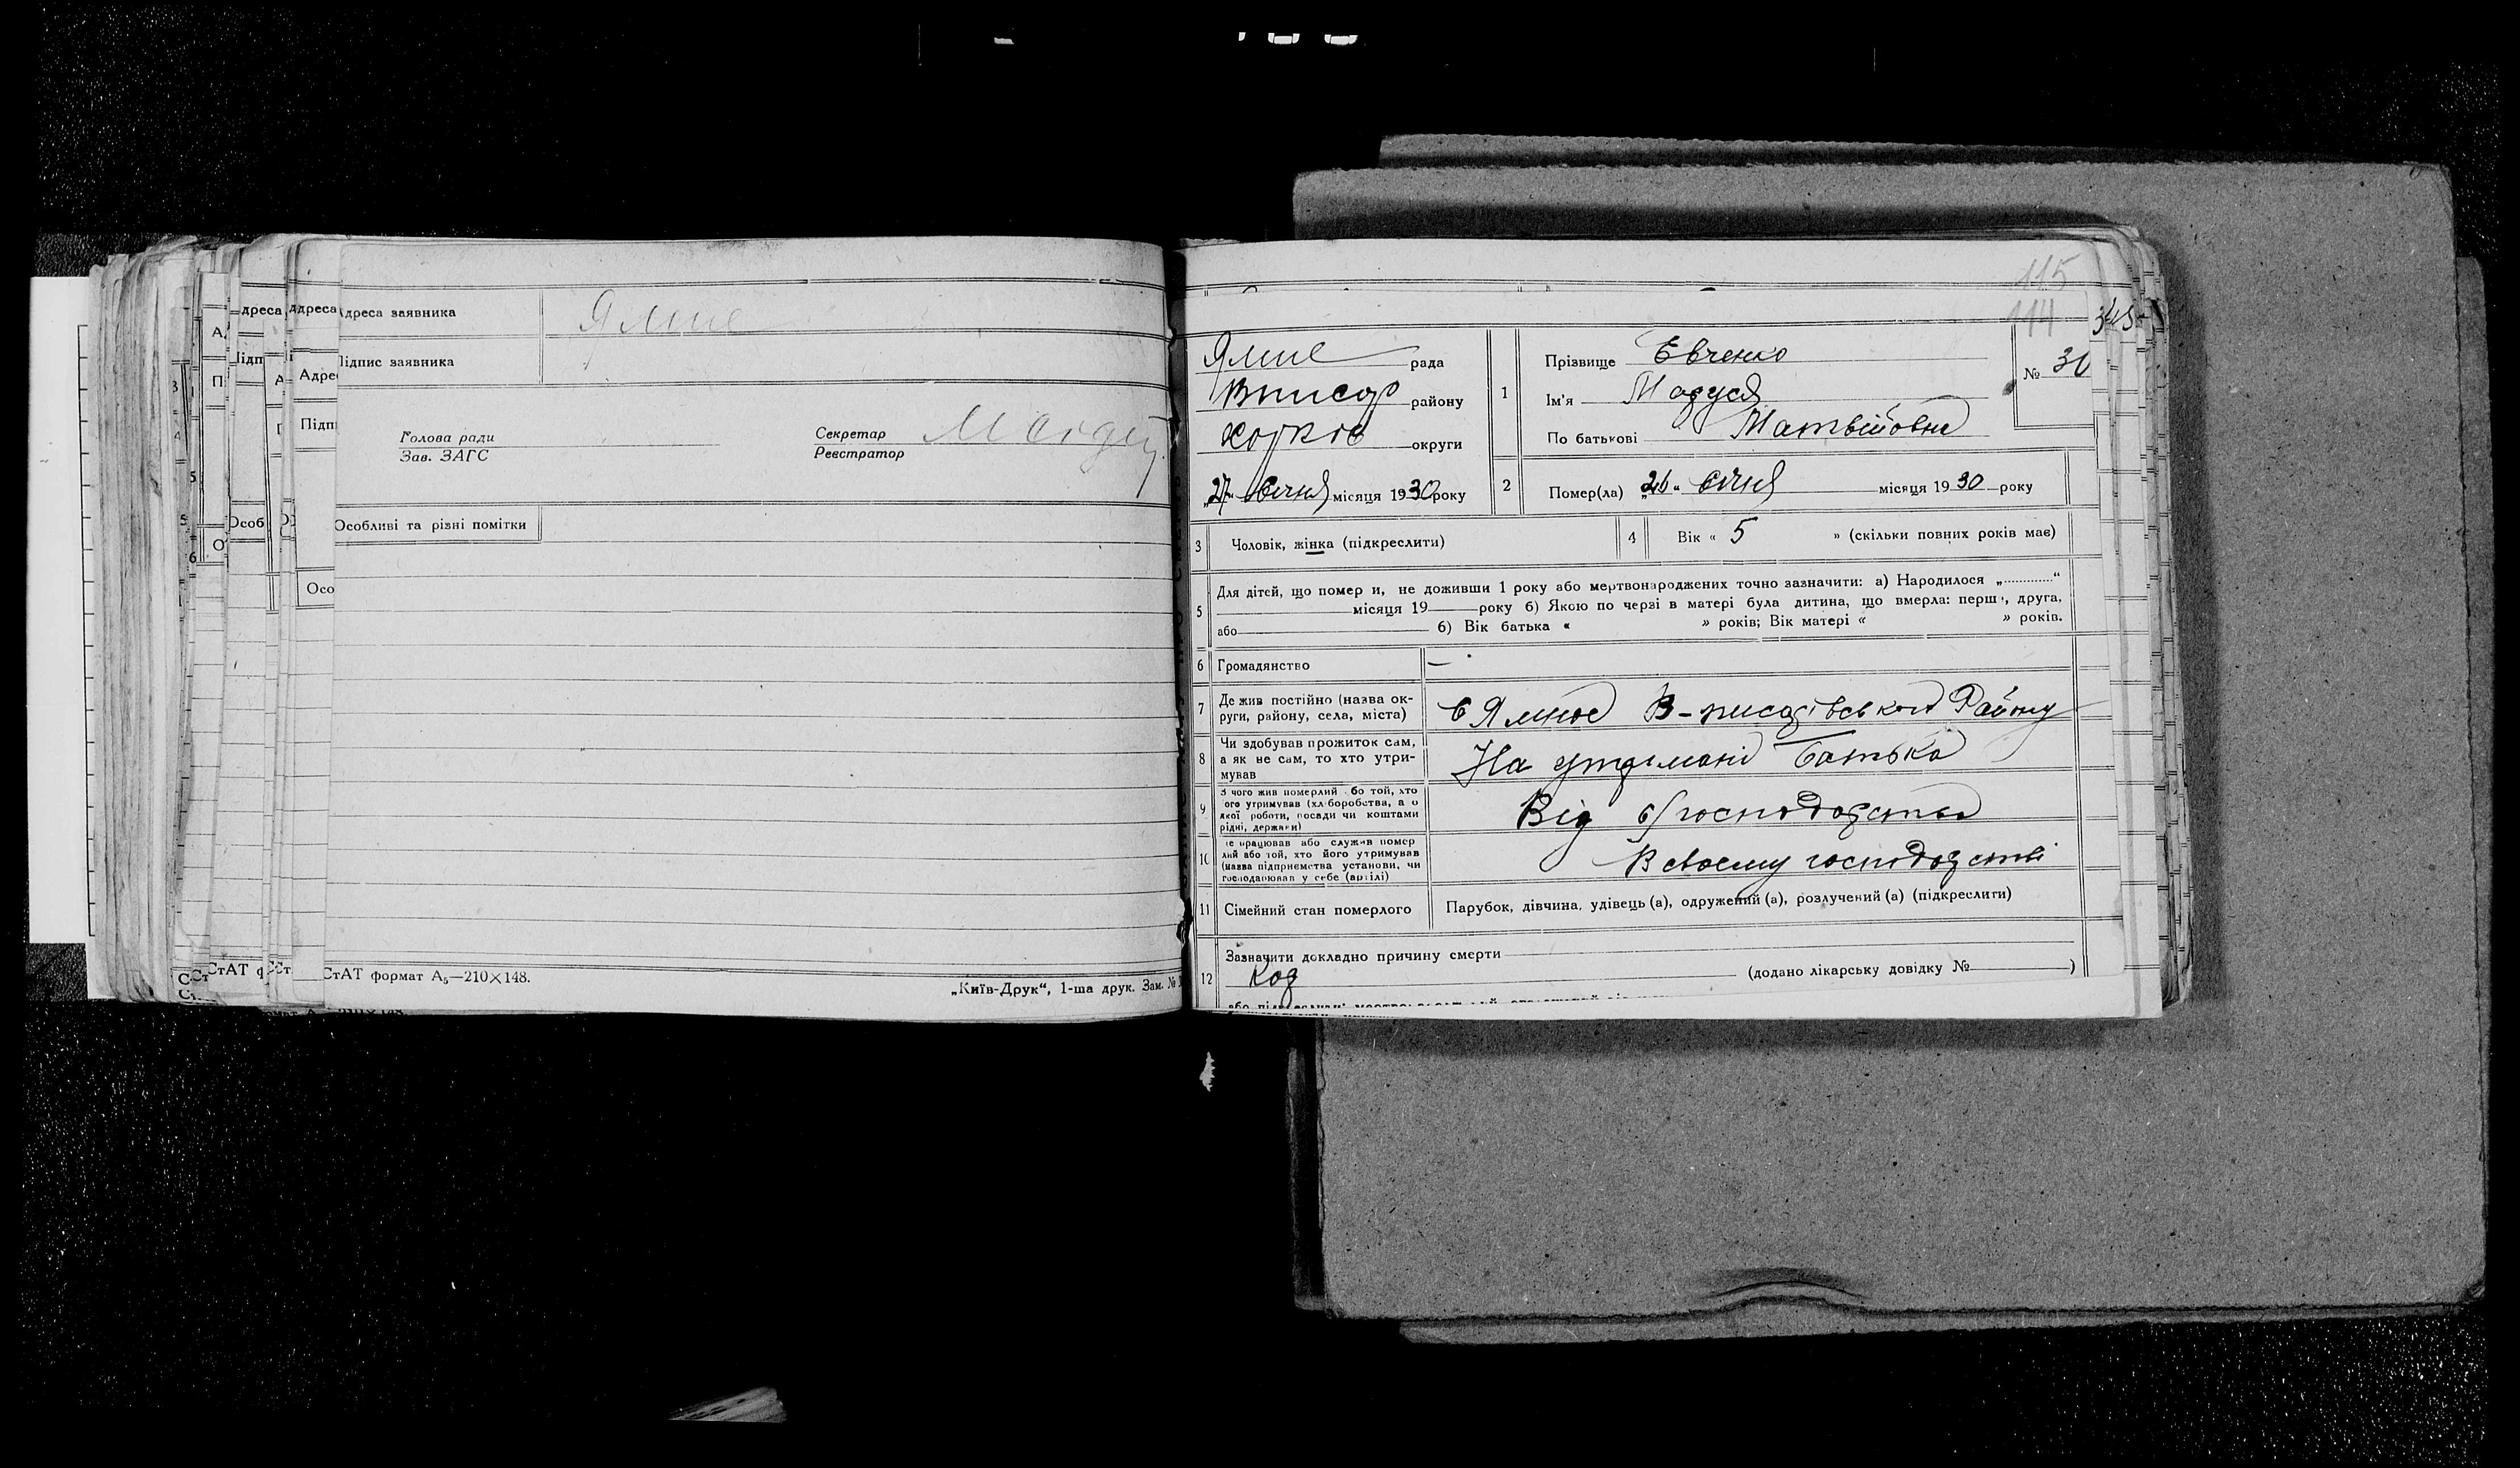 Адреса заявника Ямне
Підпис заявника
Голова ради
Зав. ЗАГС
Секретар
Реєстратор
Особливі та різні помітки
СтАТ формат А₅—210×148.
„Київ-Друк“, 1-ша друк. Зам. №
115
114
345
Ямне рада
Вписар району
Харків округи
„27“ Січня місяця 1930 року
1
Прізвище Євченко
Ім'я Маруся
По батькові Матвійовна
№ 30
2
Помер(ла) „26“ Січня місяця 1930 року
3 Чоловік, жінка (підкреслити)
4 Вік « 5 » (скільки повних років має)
5 Для дітей, що помер и, не доживши 1 року або мертвонароджених точно зазначити: а) Народилося „............“
місяця 19 року б) Якою по черзі в матері була дитина, що вмерла: перша, друга,
або б) Вік батька « » років; Вік матері « » років.
6 Громадянство —
7 Де жив постійно (назва округи, району, села, міста) с Ямное В-писарівського Району
8 Чи здобував прожиток сам, а як не сам, то хто утримував На утрімані Батька
9 З чого жив померлий або той, хто його утримував (хліборобства, а о якої роботи, посади чи коштами рідні, держави) Від с/господарства
10 Де працював або служив померлий або той, хто його утримував (назва підприємства установи, чи господарював у себе (артілі) В своєму господарстві
11 Сімейний стан померлого Парубок, дівчина, удівець (а), одружений (а), розлучений (а) (підкреслити)
12 Зазначити докладно причину смерти
Кор (додано лікарську довідку № )